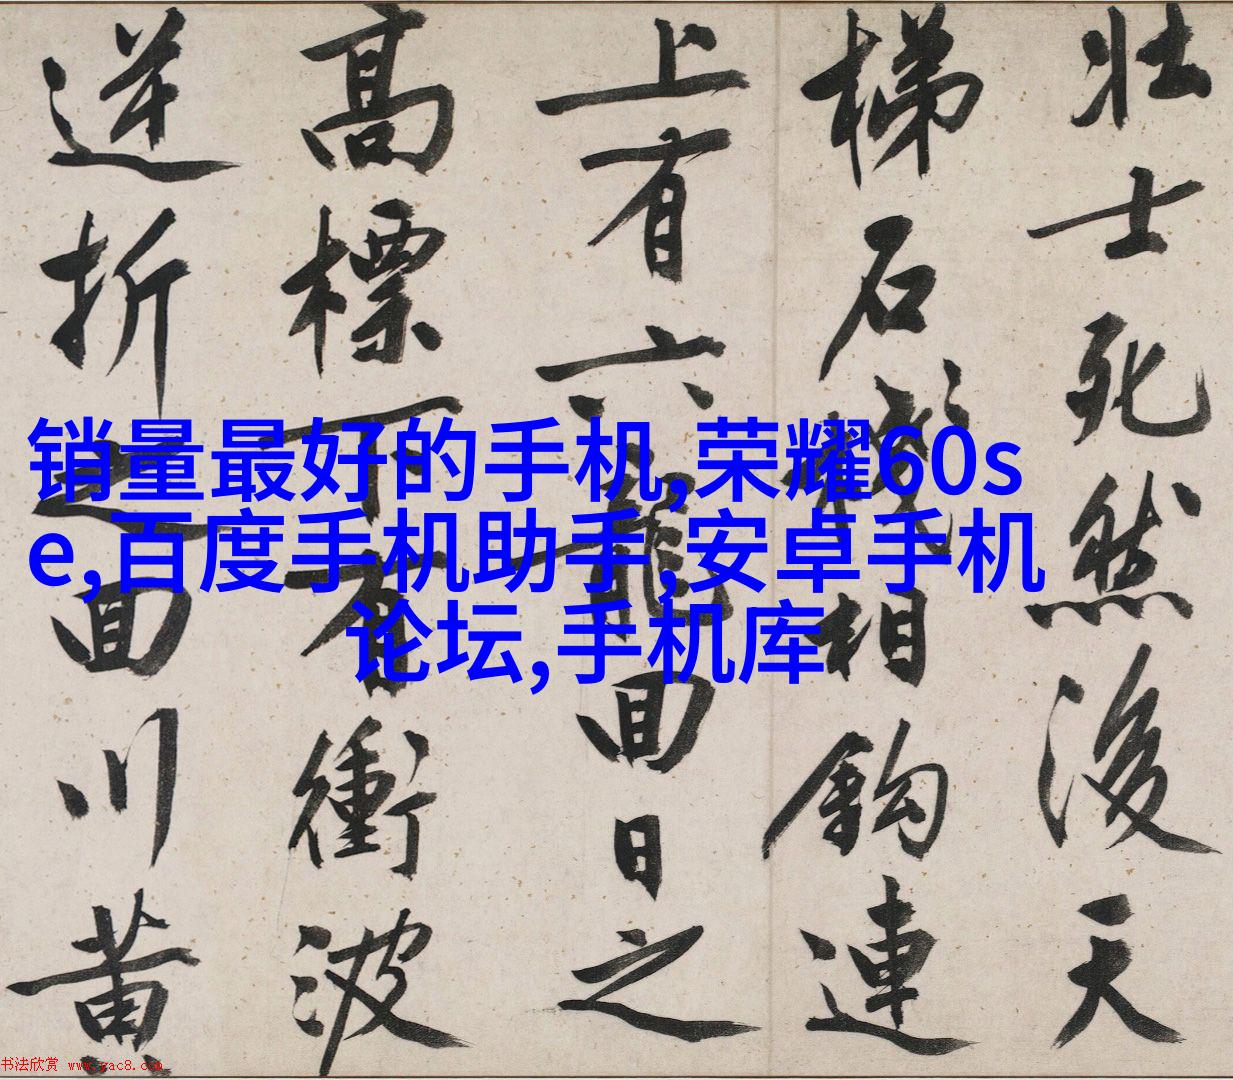 壮士死然後天
梯石棧相鈎連
上有六龍回日之
高標下有衝波
逆折之回川黄
销量最好的手机,荣耀60s
e,百度手机助手,安卓手机
论坛,手机库
书法欣赏 www.yac8.com